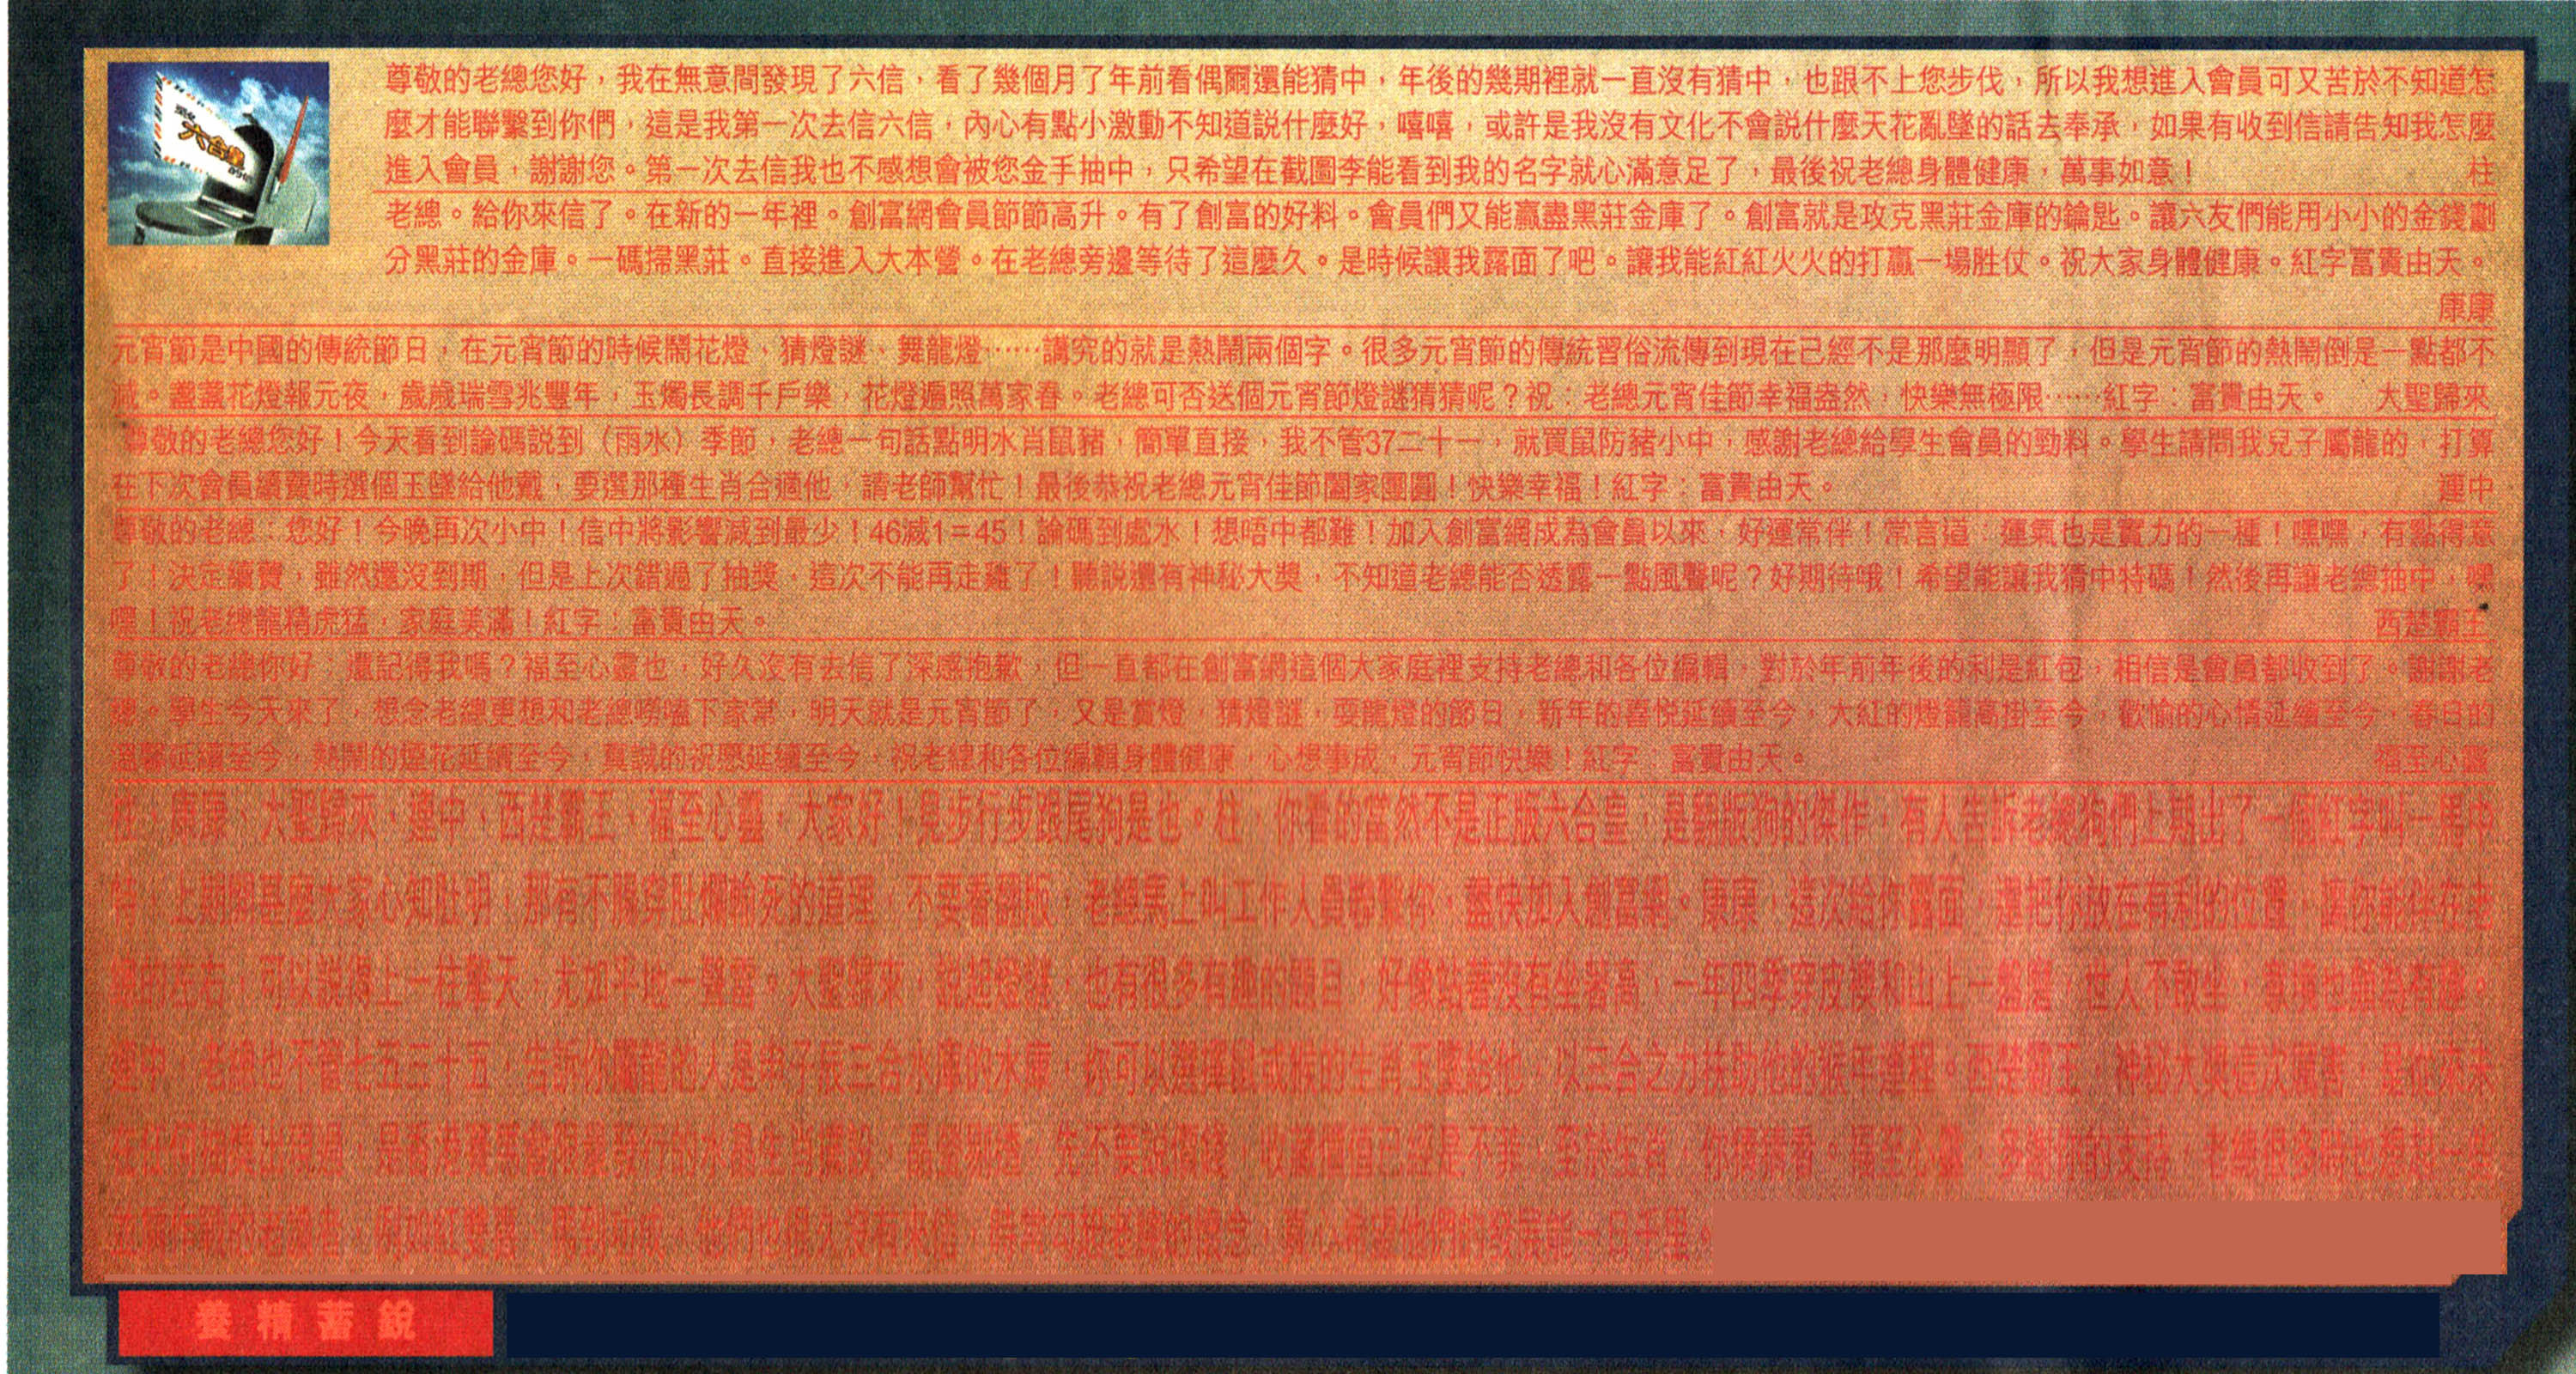 六合皇
尊敬的老總您好，我在無意間發現了六信，看了幾個月了年前看偶爾還能猜中，年後的幾期裡就一直沒有猜中，也跟不上您步伐，所以我想進入會員可又苦於不知道怎
麼才能聯繫到你們，這是我第一次去信六信，內心有點小激動不知道説什麼好，嘻嘻，或許是我沒有文化不會説什麼天花亂墜的話去奉承，如果有收到信請告知我怎麼
進入會員，謝謝您。第一次去信我也不感想會被您金手抽中，只希望在截圖李能看到我的名字就心滿意足了，最後祝老總身體健康，萬事如意！ 柱
老總。給你來信了。在新的一年裡。創富網會員節節高升。有了創富的好料。會員們又能贏盡黑莊金庫了。創富就是攻克黑莊金庫的鑰匙。讓六友們能用小小的金錢劃
分黑莊的金庫。一碼掃黑莊。直接進入大本營。在老總旁邊等待了這麼久。是時候讓我露面了吧。讓我能紅紅火火的打贏一場胜仗。祝大家身體健康。紅字富貴由天。
康康
元宵節是中國的傳統節日，在元宵節的時候鬧花燈、猜燈謎、舞龍燈……講究的就是熱鬧兩個字。很多元宵節的傳統習俗流傳到現在已經不是那麼明顯了，但是元宵節的熱鬧倒是一點都不
減。盞盞花燈報元夜，歲歲瑞雪兆豐年，玉燭長調千戶樂，花燈遍照萬家春。老總可否送個元宵節燈謎猜猜呢？祝：老總元宵佳節幸福盎然，快樂無極限……紅字：富貴由天。 大聖歸來
尊敬的老總您好！今天看到論碼説到（雨水）季節，老總一句話點明水肖鼠豬，簡單直接，我不管37二十一，就買鼠防豬小中，感謝老總給學生會員的勁料。學生請問我兒子屬龍的，打算
在下次會員續費時選個玉墜給他戴，要選那種生肖合適他，請老師幫忙！最後恭祝老總元宵佳節闔家團圓！快樂幸福！紅字：富貴由天。 連中
尊敬的老總：您好！今晚再次小中！信中將影響減到最少！46減1=45！論碼到處水！想唔中都難！加入創富網成為會員以來，好運常伴！常言道：運氣也是實力的一種！嘿嘿，有點得意
了！決定續費，雖然還沒到期，但是上次錯過了抽獎，這次不能再走雞了！聽説還有神秘大獎，不知道老總能否透露一點風聲呢？好期待哦！希望能讓我猜中特碼！然後再讓老總抽中，嘿
嘿！祝老總龍精虎猛，家庭美滿！紅字：富貴由天。 西楚霸王
尊敬的老總你好：還記得我嗎？福至心靈也，好久沒有去信了深感抱歉，但一直都在創富網這個大家庭裡支持老總和各位編輯，對於年前年後的利是紅包，相信是會員都收到了。謝謝老
總。學生今天來了，想念老總更想和老總嘮嗑下家常，明天就是元宵節了，又是賞燈，猜燈謎，耍龍燈的節日，新年的喜悦延續至今，大紅的燈籠高掛至今，歡愉的心情延續至今，春日的
溫馨延續至今，熱鬧的煙花延續至今，真誠的祝愿延續至今，祝老總和各位編輯身體健康，心想事成，元宵節快樂！紅字：富貴由天。 福至心靈
柱、康康、大聖歸來，連中、西楚霸王，福至心靈，大家好！見步行步跟尾狗是也。柱，你看的當然不是正版六合皇，是翻版狗的傑作，有人告訴老總狗們上期出了一個紅字叫一馬中
特，上期開甚麼大家心知肚明，那有不腸穿肚爛輸死的道理，不要看翻版，老總馬上叫工作人員聯繫你，盡快加入創富網。康康，這次給你露面，還把你放在有利的位置，讓你能伴在老
總的左右，可以説得上一柱擎天，尤如平地一聲雷。大聖歸來，説起燈謎，也有很多有趣的題目，好像站著沒有坐著高，一年四季穿皮襖和山上一盤磨，世人不敢坐，
連中，老總也不管七五三十五，告訴你屬龍的人是申子辰三合水庫的水庫，你可以選擇鼠或猴的生肖玉墜給他，以三合之力扶助他的猴年運程。西楚霸王，神秘大獎這次厲害，是從來未
先不要説價錢，收藏價值已經是不菲，至於生肖，你猜猜看。福至心靈，多謝你的支持，老總很多時也想起一些
他們也很久沒有來信，真心希望他們的發展能一日千里。
養精蓄銳